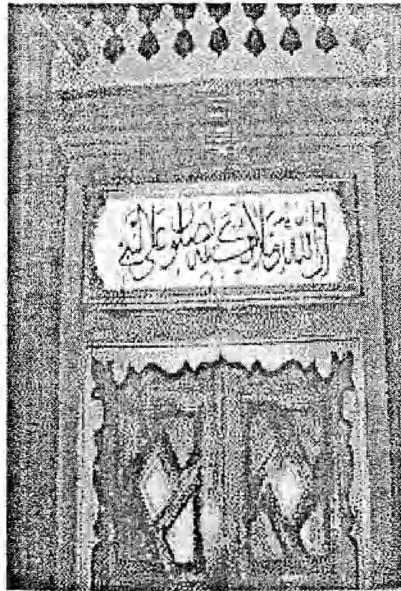 ان الله وملائكته يصلون على النبي